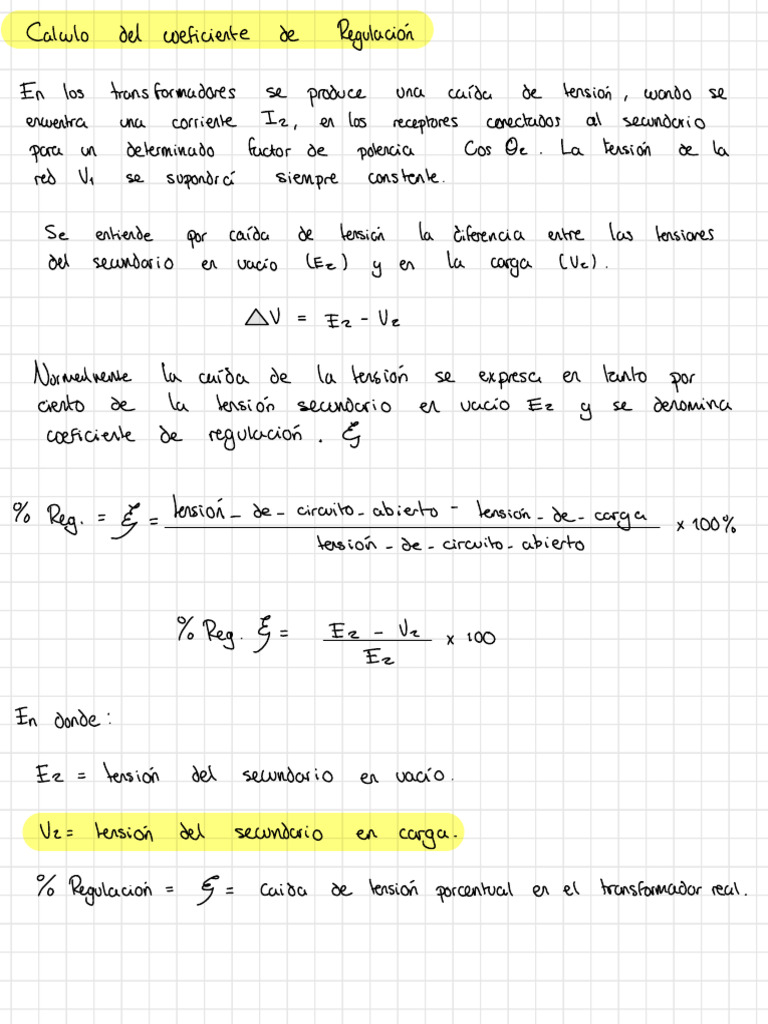 Calculo del coeficiente de Regulación
En los transformadores se produce una caída de tensión, cuando se
encuentra una corriente I2, en los receptores conectados al secundario
para un determinado factor de potencia Cos θc. La tensión de la
red V1 se supondrá siempre constante.
Se entiende por caída de tensión la diferencia entre las tensiones
del secundario en vacío (E2) y en la carga (V2).
△V = E2 - V2
Normalmente la caída de la tensión se expresa en tanto por
ciento de la tensión secundario en vacío E2 y se denomina
coeficiente de regulación. ξ
% Reg. = ξ = tensión_de_circuito_abierto - tensión_de_carga / tensión_de_circuito_abierto x 100%
% Reg. ξ = E2 - V2 / E2 x 100
En donde:
E2 = tensión del secundario en vacío.
V2 = tensión del secundario en carga.
% Regulación = ξ = caida de tensión porcentual en el transformador real.